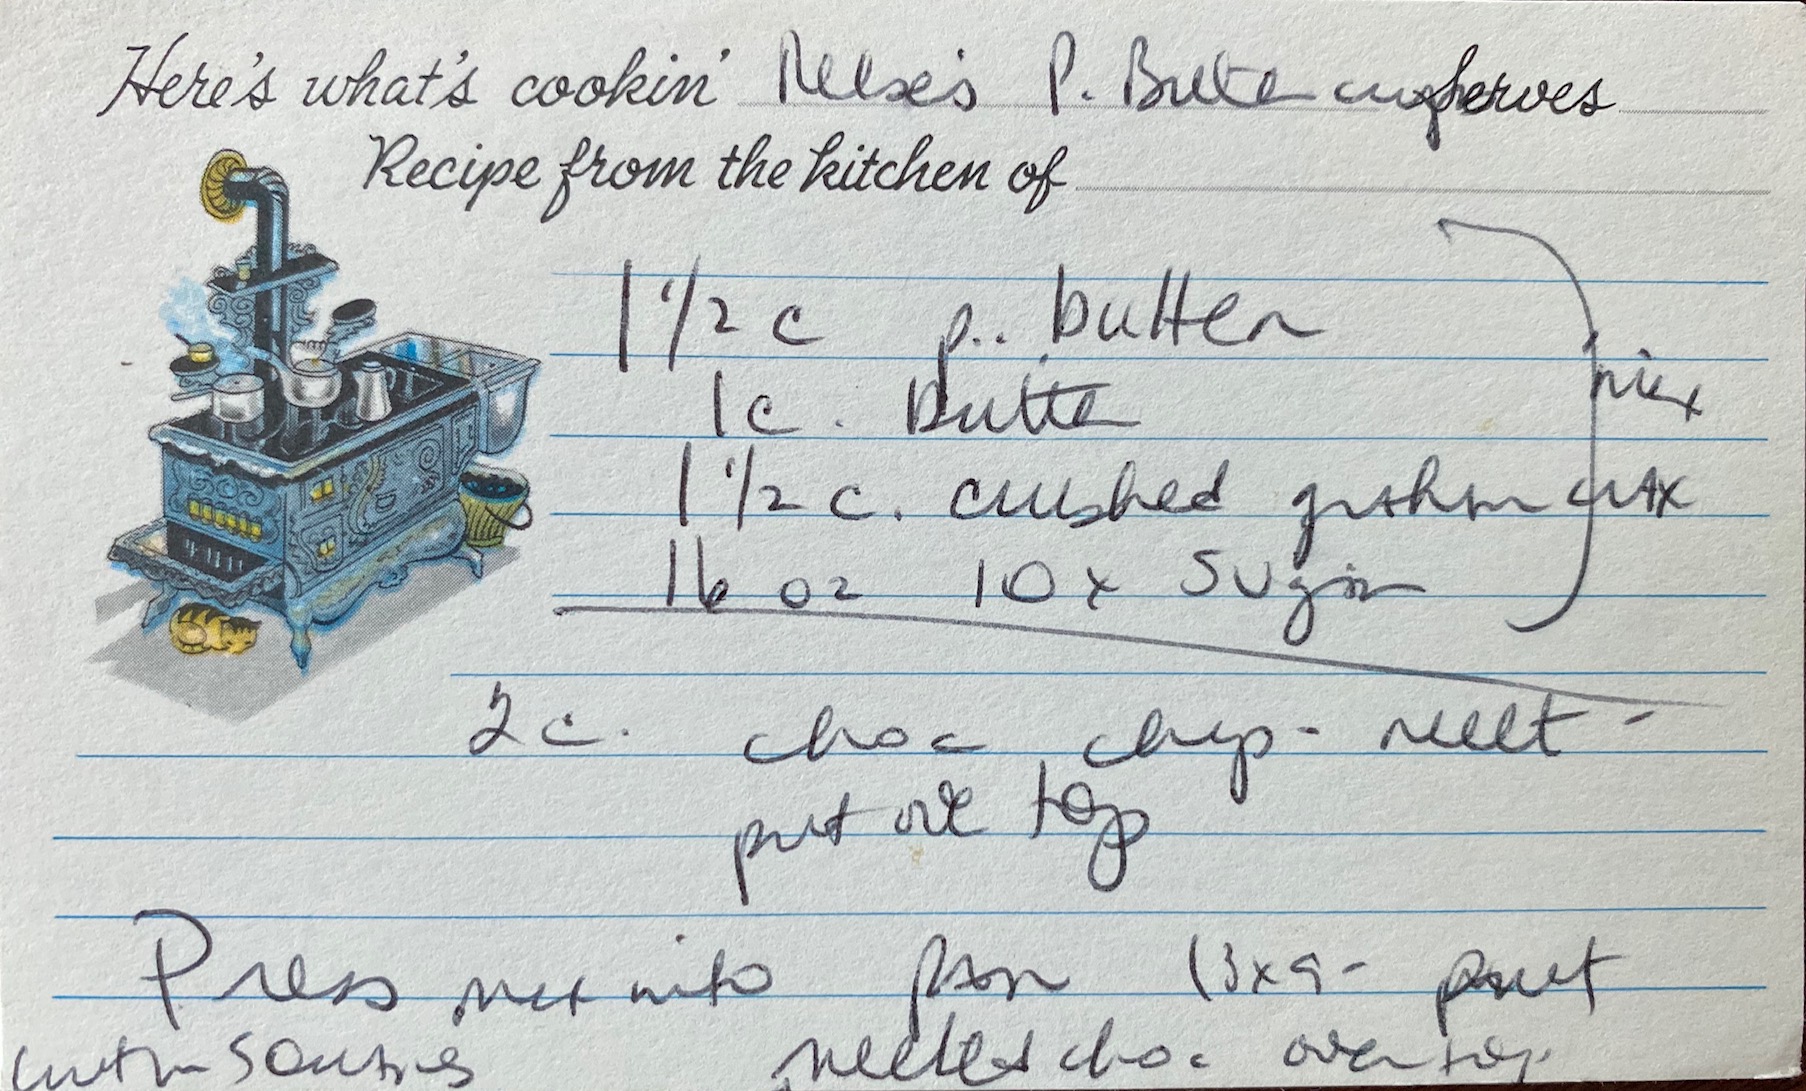 Here's what's cookin' Reese's P. Butter cups serves
Recipe from the kitchen of
1 1/2 c p. butter
1 c. butter mix
1 1/2 c. crushed graham crax
16 oz 10 x sugar
2 c. choc chips - melt -
put on top
Press mix into pan 13x9 - put
cut in squares melted choc over top.